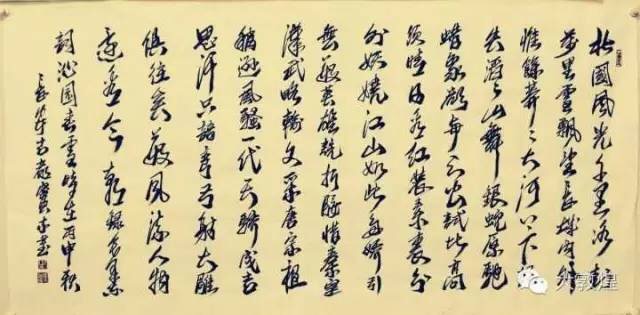 北國風光千里冰封
萬里雪飄望長城内外
惟餘莽々大河上下頓
失滔々山舞銀蛇原馳
蠟象欲與天公試比高
須晴日看紅裝素裹分
外妖嬈江山如此多嬌引
無數英雄競折腰惜秦皇
漢武略輸文采唐宗祖
稍遜風騷一代天驕成吉
思汗只識彎弓射大雕
俱往矣數風流人物
還看今朝錄毛澤東
詞沁園春雪時在丙申秋
大敦煌